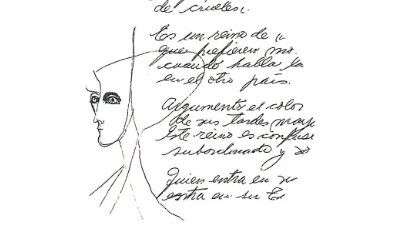 de crueles.
Es un reino de
que prefieren mo
cuando habla la
en el otro país.
Argumento el color
de sus tardes
Este reino es confuso
subordinado y
Quien entra en
entra en su Es